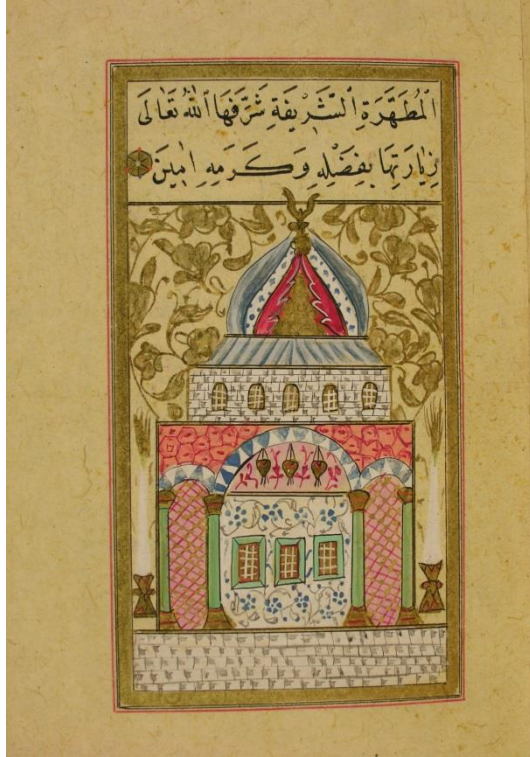 الْمُطَهَّرَةِ الشَّرِيفَةِ شَرَّفَهَا اللّٰهُ تَعَالَى
زِيَارَتِهَا بِفَضْلِهِ وَكَرَمِهِ اٰمِينَ